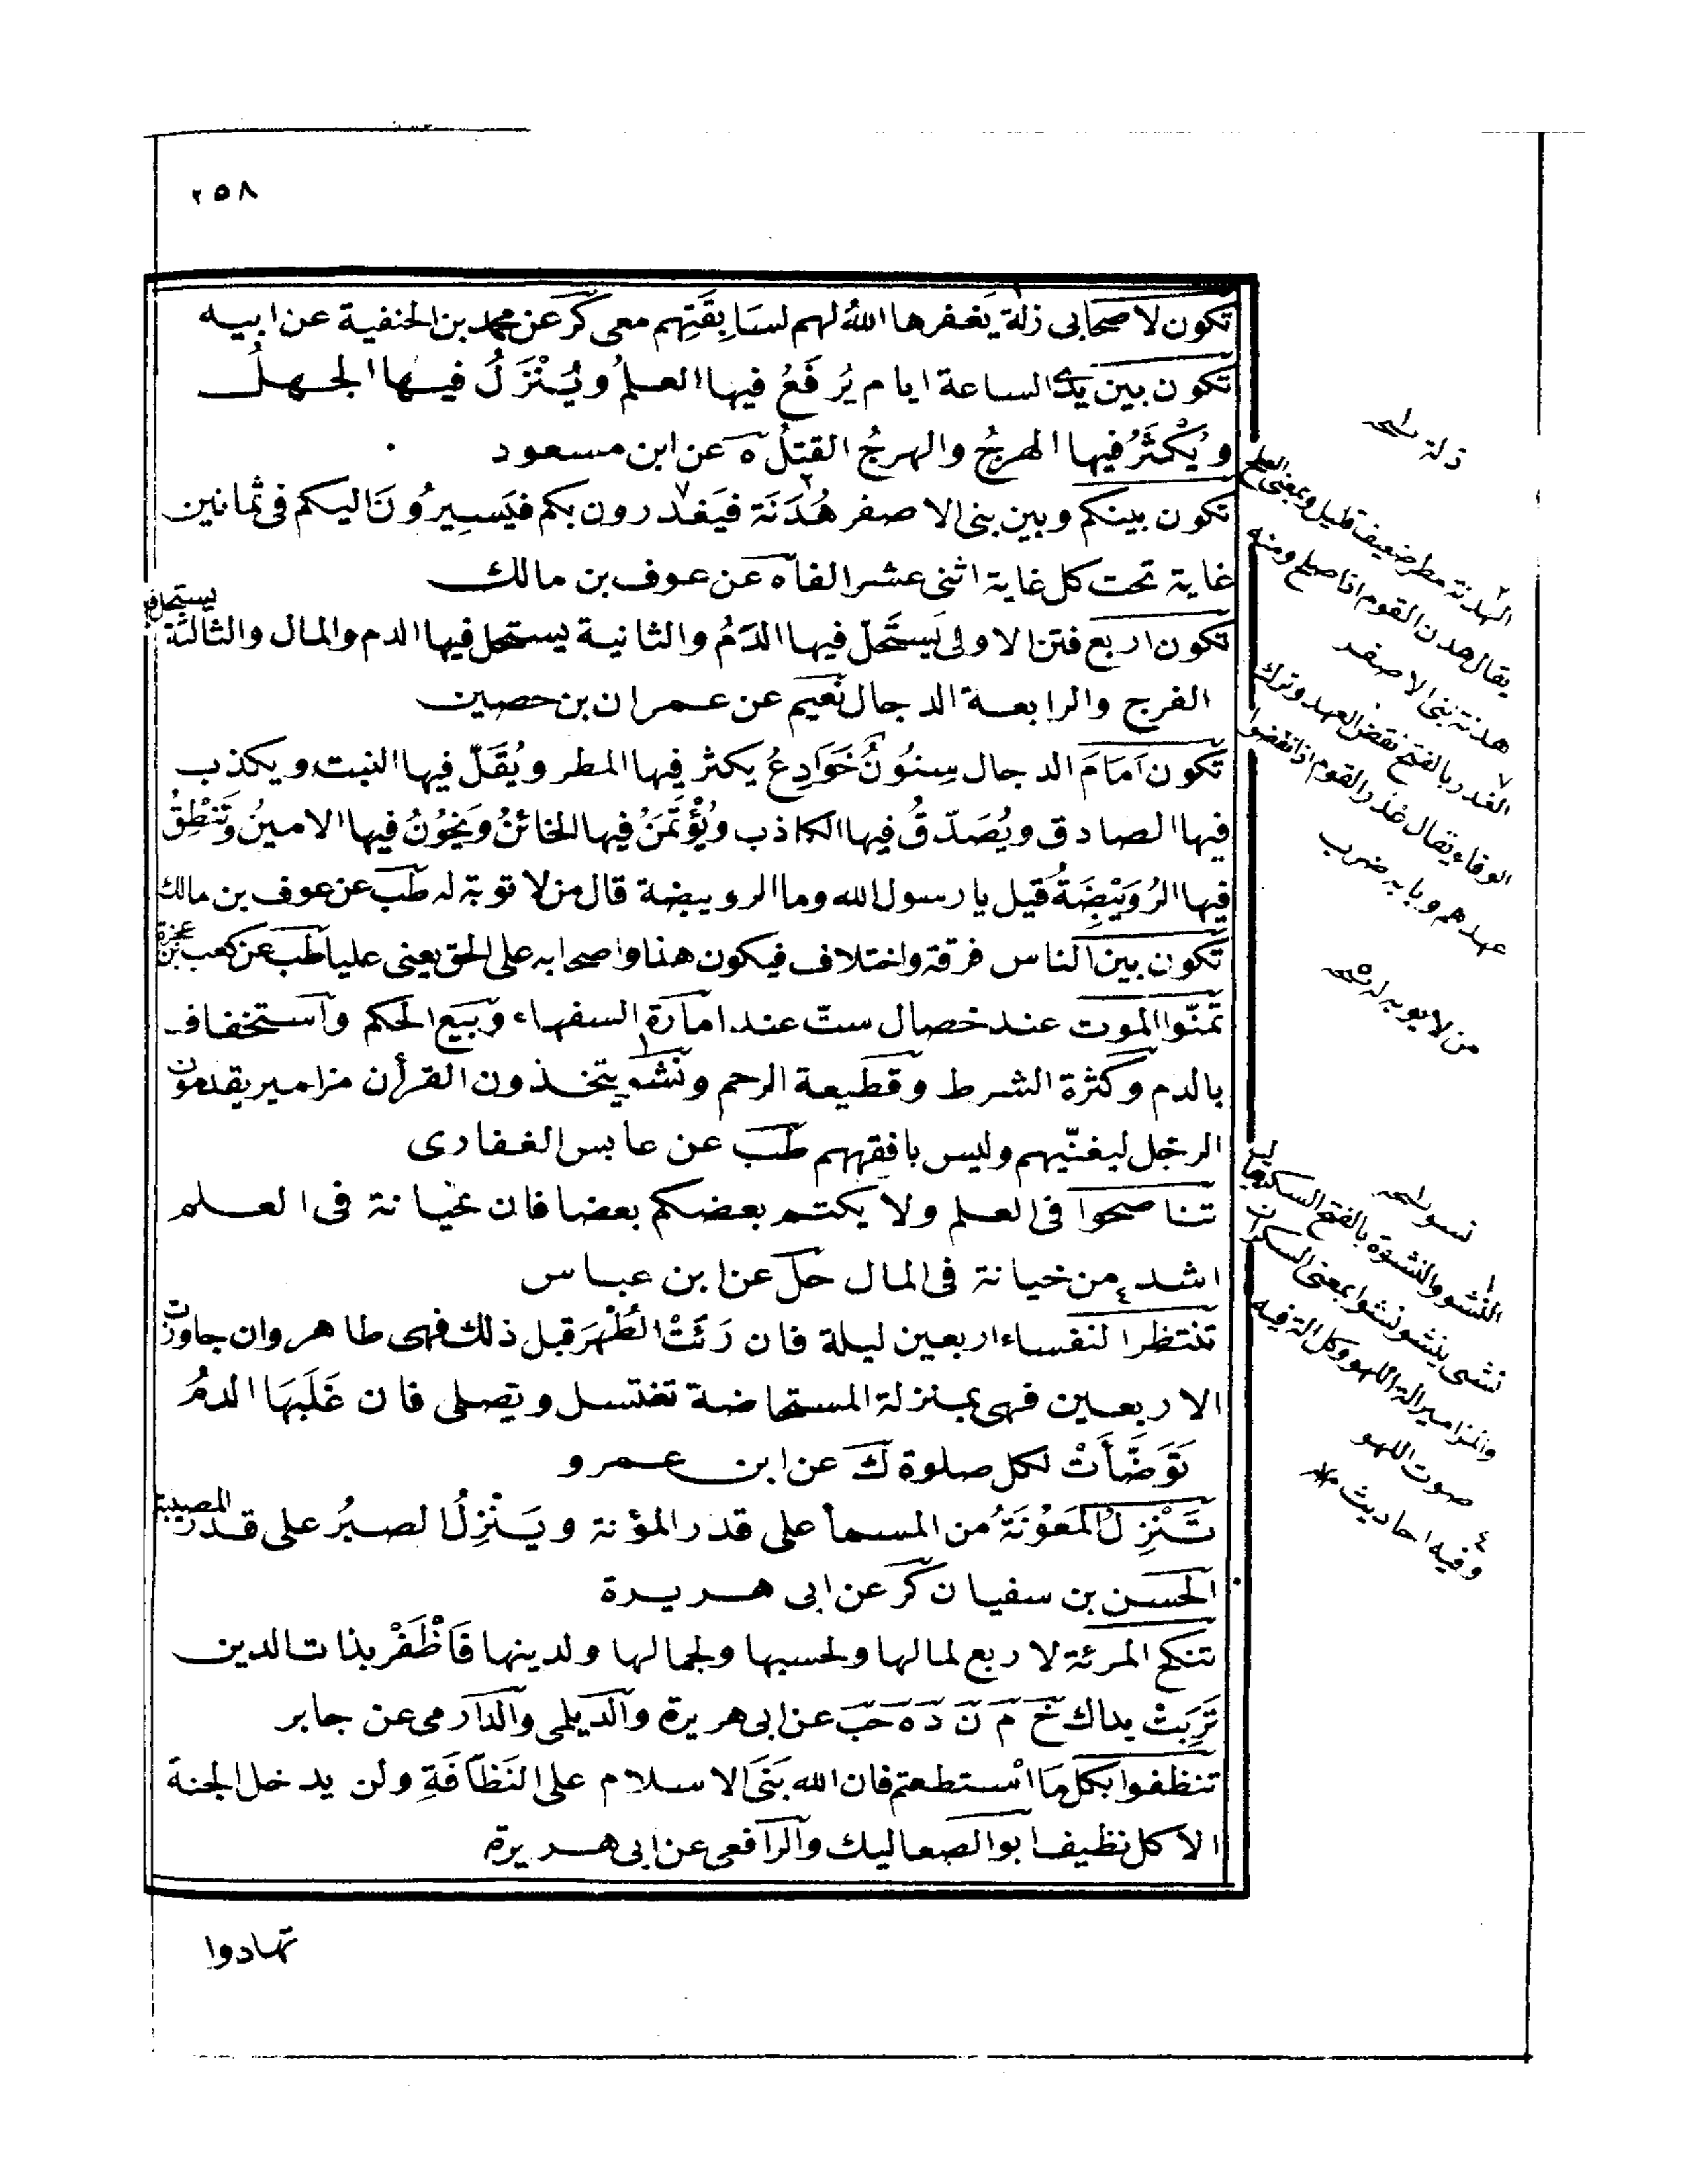 ٢٥٨
تكون لاصحابى زلة يَغفرها اللهُ لهم لسَابِقَتِهِم معى كر عن محمد بن الحنفية عن ابيه
تكون بين يدى الساعة ايام يُرفَعُ فيها العلمُ ويُنْزَلُ فيها الجهلُ
ويُكْثَرُ فيها الهرجُ والهرجُ القتلُ ه عن ابن مسعود
تكون بينكم وبين بنى الاصفر هُدْنَة فيَغدرون بكم فيَسيرُونَ اليكم فى ثمانين
غاية تحت كل غاية اثنى عشر الفا ه عن عوف بن مالك
تكون اربع فتن الاولى يَستَحلّ فيها الدَمُ والثانية يستحل فيها الدم والمال والثالثة يستحل فيها
الفرج والرابعة الدجال نعيم عن عمران بن حصين
تكون اَمَامَ الدجال سِنُونٌ خَوَادِعُ يكثر فيها المطر ويُقَلّ فيها النبت ويكذب
فيها الصادق ويُصَدّقُ فيها الكاذب ويُؤْتَمَنُ فيها الخائنُ ويَخُوْنُ فيها الامينُ وتَنْطِقُ
فيها الرُوَيْبِضَةُ قيل يا رسول الله وما الرويبضة قال من لا توبة له طب عن عوف بن مالك
تكون بين الناس فرقة واختلاف فيكون هذا واصحابه على الحق يعنى عليا طب عن كعب بن عجزة
تمنّوا الموت عند خصال ستّ عند امارة السفهاء وبيع الحكم واستخفاف
بالدم وكثرة الشرط وقطيعة الرحم ونشو يتخذون القرأن مزامير يقدمون
الرجل ليغنّيهم وليس بافقههم طب عن عابس الغفارى
تناصحوا فى العلم ولا يكتم بعضكم بعضا فان خيانة فى العلم
اشد من خيانة فى المال حل عن ابن عباس
تنتظر النفساء اربعين ليلة فان رَئَتْ الطُهْرَ قبل ذلك فهى طاهر وان جاوزت
الاربعين فهى بمنزلة المستحاضة تغتسل وتصلى فان غَلَبَهَا الدمُ
تَوَضَّأَتْ لكل صلوة ك عن ابن عمرو
تَنْزِلُ المَعُوْنَةُ من السمأ على قدر المؤنة ويَنْزِلُ الصبرُ على قدر المصيبة
الحسن بن سفيان كر عن ابى هريرة
تنكح المرئة لاربع لمالها ولحسبها ولجمالها ولدينها فَاظْفَرْ بذات الدين
تَرِبَتْ يداك خ م ن د ه حب عن ابى هريرة والديلمى والدارمى عن جابر
تنظفوا بكل مَا اسْتطعتم فان الله بَنَى الاسلام على النَظَافَةِ ولن يدخل الجنة
الا كل نظيف ابو الصعاليك والرافعى عن ابى هريرة
تهادوا
زلة نسخه
الهدنة مطر ضعيف قليل وبمعنى الصلح
يقال هدن القوم اذا صلح ومنه
هدنة بنى الاصفر
الغدر بالفتح نقض العهد وترك
الوفاء يقال غدر القوم اذا نقضوا
عهدهم وبابه ضرب
من لا يوبه له نسخه
نسو نسخه
النشو والنشوة بالفتح السكر
نشى ينشو نشوا بمعنى السكران
والمزامير الة اللهو وكل الة فيه
صوت اللهو
وفيه احاديث